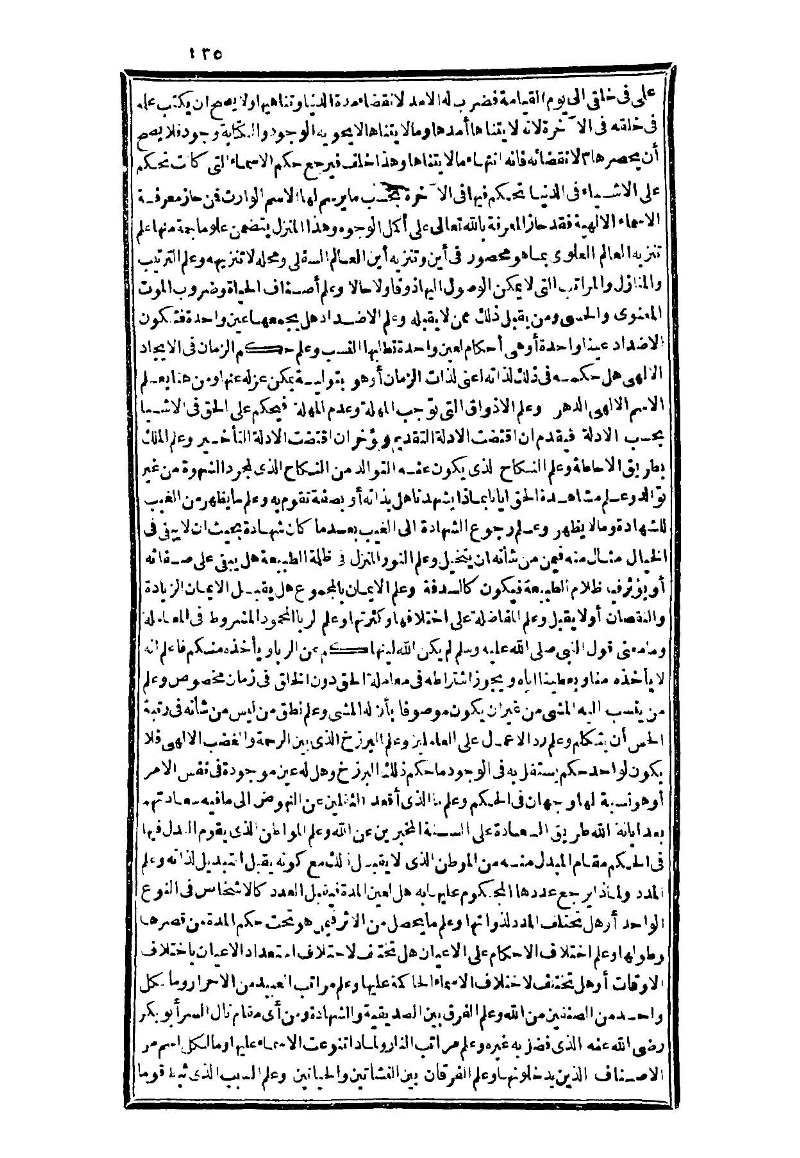 ١٣٥
علمى فى خلقى الى يوم القيامة فضرب له الامد لانقضاء مدة الدنيا وتناهيها ولا يصح ان يكتب علمه
فى خلقه فى الآخرة لانه لا يتناها أمدها وما لا يتناها لا يحويه الوجود والكتابة وجود فلا يصح
أن يحصرها لانقضائه فانه انتهاء ما لا يتناها وهذا خلف فيرجع حكم الاسماء التى كانت تحكم
على الاشياء فى الدنيا تحكم فيها فى الآخرة بحسب ما يرسم لها الاسم الوارث فمن حاز معرفة
الاسماء الالهية فقد حاز المعرفة بالله تعالى على أكمل الوجوه وهذا المنزل يتضمن علوما جمة منها علم
تنزيه العالم العلوى بما هو محصور فى أين وتنزيه أين العالم السفلى ومحله لا تنزيهه وعلم الترتيب
والمنازل والمراتب التى لا يمكن الوصول اليها ذوقا ولا حالا وعلم أصناف الحياة وضروب الموت
المعنوى والحسى ومن يقبل ذلك ممن لا يقبله وعلم الاضداد هل يجمعها عين واحدة فتكون
الاضداد عينا واحدة أو هى أحكام لعين واحدة تطلبها النسب وعلم حكم الزمان فى الايجاد
الالهى هل حكمه فى ذلك لذاته اعنى لذات الزمان أو هو بتولية يمكن عزله عنها ومن هنا يعلم
الاسم الالهى الدهر وعلم الاذواق التى توجب المهلة وعدم المهلة فيحكم على الحق فى الاشيا
بحسب الادلة فيقدم ان اقتضت الادلة التقديم ويؤخر ان اقتضت الادلة التأخير وعلم الملك
بطريق الاحاطة وعلم النكاح لذى يكون عنه التوالد من النكاح الذى لمجرد الشهوة من غير
توالد وعلم مشاهدة الحق ايانا بماذا يشهدنا هل بذاته أو بصفة تقوم به وعلم ما يظهر من الغيب
للشهادة وما لا يظهر وعلم رجوع الشهادة الى الغيب بعد ما كان شهادة بحيث ان لا يبقى فى
الخيال مثال منه فيمن من شأنه ان يتخيل وعلم النور المنزل فى ظلمة الطبيعة هل يبقى على صفائه
أو يؤثر فيه ظلام الطبيعة فيكون كالسدفة وعلم الايمان بالمجموع هل يقبل الايمان الزيادة
والنقصان أولا يقبل وعلم المفاضلة على اختلافها وكثرتها وعلم لربا المحمود المشروط فى المعاملة
وما معنى قول النبى صلى الله عليه وسلم لم يكن الله لينهاكم عن الربا ويأخذه منكم فاعلم انه
لا يأخذه منا ويعطينا اياه ويجوز اشتراطه فى معاملة الحق دون الخلق فى زمان مخصوص وعلم
من ينسب اليه المشى من غير ان يكون موصوفا بأنه له المشى وعلم نطق من ليس من شأنه فى رتبة
الحس أن يتكلم وعلم رد الاعمال على العاملين وعلم البرزخ الذى بين الرحمة والغضب الالهى فلا
يكون لواحد حكم يستقل به فى الوجود ما حكم ذلك البرزخ وهل له عين موجودة فى نفس الامر
أو هو نسبة لها وجهان فى الحكم وعلم ما الذى أقعد الثقلين عن النهوض الى ما فيه سعادتهم
بعد ابانة الله طريق السعادة على السنة المخبرين عن الله وعلم المواطن الذى يقوم البدل فيها
فى الحكم مقام المبدل منه من الموطن الذى لا يقبل ذلك مع كونه يقبل التبديل لذاته وعلم
المدد ولماذا يرجع عددها المحكوم عليها به هل لعين المدة فيقبل العدد كالاشخاص فى النوع
الواحد أو هل تختلف المدد لذواتها وعلم ما يحصل من الاثر فيمن هو تحت حكم المدة من قصرها
وطولها وعلم اختلاف الاحكام على الاعيان هل تختلف لاختلاف استعداد الاعيان باختلاف
الاوقات أو هل تختلف لاختلاف الاسماء الحاكمة عليها وعلم مراتب العبيد من الاحرار وما لكل
واحد من الصنفين من الله وعلم الفرق بين الصديقية والشهادة ومن أى مقام نال السر أبو بكر
رضى الله عنه الذى فضل به غيره وعلم مراتب النار ولماذا تنوعت الاسماء عليها وما لكل اسم من
الاصناف الذين يدخلونها وعلم الفرقان بين النشأتين والحياتين وعلم السبب الذى ثبط قوما